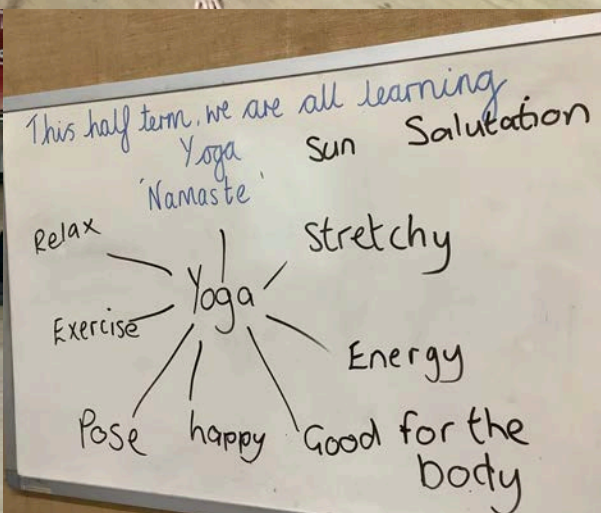 This half term, we are all learning
Yoga
Sun Salutation
'Namaste'
Relax
Stretchy
Yoga
Exercise
Energy
Pose
happy
Good for the
body